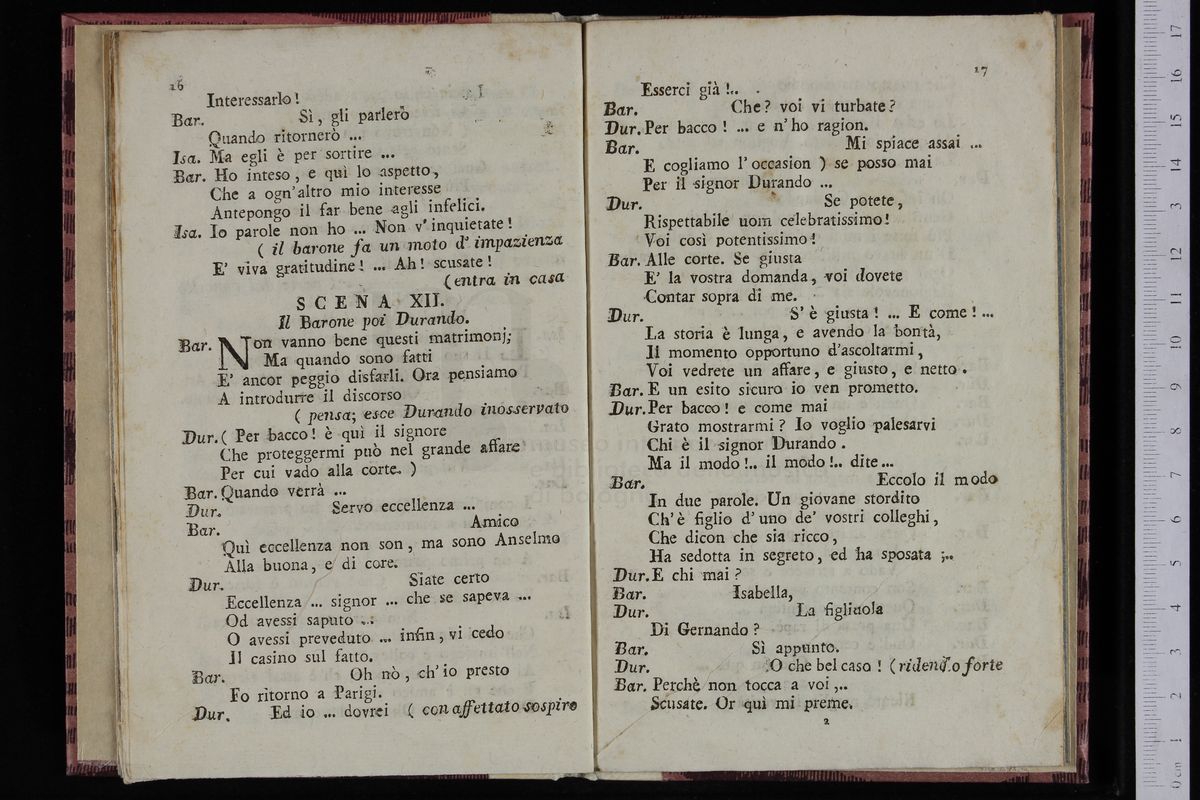 16
Interessarlo!
Bar. Sì, gli parlerò
Quando ritornerò ...
Isa. Ma egli è per sortire ...
Bar. Ho inteso, e quì lo aspetto,
Che a ogn'altro mio interesse
Antepongo il far bene agli infelici.
Isa. Io parole non ho ... Non v'inquietate!
( il barone fa un moto d'impazienza
E' viva gratitudine! ... Ah! scusate!
(entra in casa
SCENA XII.
Il Barone poi Durando.
Bar. Non vanno bene questi matrimonj;
Ma quando sono fatti
E' ancor peggio disfarli. Ora pensiamo
A introdurre il discorso
( pensa; esce Durando inosservato
Dur. ( Per bacco! è quì il signore
Che proteggermi può nel grande affare
Per cui vado alla corte. )
Bar. Quando verrà ...
Dur. Servo eccellenza ...
Bar. Amico
Quì eccellenza non son, ma sono Anselmo
Alla buona, e di core.
Dur. Siate certo
Eccellenza ... signor ... che se sapeva ...
Od avessi saputo ...
O avessi preveduto ... infin, vi cedo
Il casino sul fatto.
Bar. Oh nò, ch'io presto
Fo ritorno a Parigi.
Dur. Ed io ... dovrei ( con affettato sospiro
17
Esserci già!..
Bar. Che? voi vi turbate?
Dur. Per bacco! ... e n'ho ragion.
Bar. Mi spiace assai ...
E cogliamo l'occasion ) se posso mai
Per il signor Durando ...
Dur. Se potete,
Rispettabile uom celebratissimo!
Voi così potentissimo!
Bar. Alle corte. Se giusta
E' la vostra domanda, voi dovete
Contar sopra di me.
Dur. S'è giusta! ... E come! ...
La storia è lunga, e avendo la bontà,
Il momento opportuno d'ascoltarmi,
Voi vedrete un affare, e giusto, e netto.
Bar. E un esito sicuro io ven prometto.
Dur. Per bacco! e come mai
Grato mostrarmi? Io voglio palesarvi
Chi è il signor Durando.
Ma il modo!.. il modo!.. dite...
Bar. Eccolo il modo
In due parole. Un giovane stordito
Ch'è figlio d'uno de' vostri colleghi,
Che dicon che sia ricco,
Ha sedotta in segreto, ed ha sposata ;..
Dur. E chi mai?
Bar. Isabella,
Dur. La figliuola
Di Gernando?
Bar. Sì appunto.
Dur. O che bel caso! (ridendo forte
Bar. Perchè non tocca a voi,..
Scusate. Or quì mi preme.
2